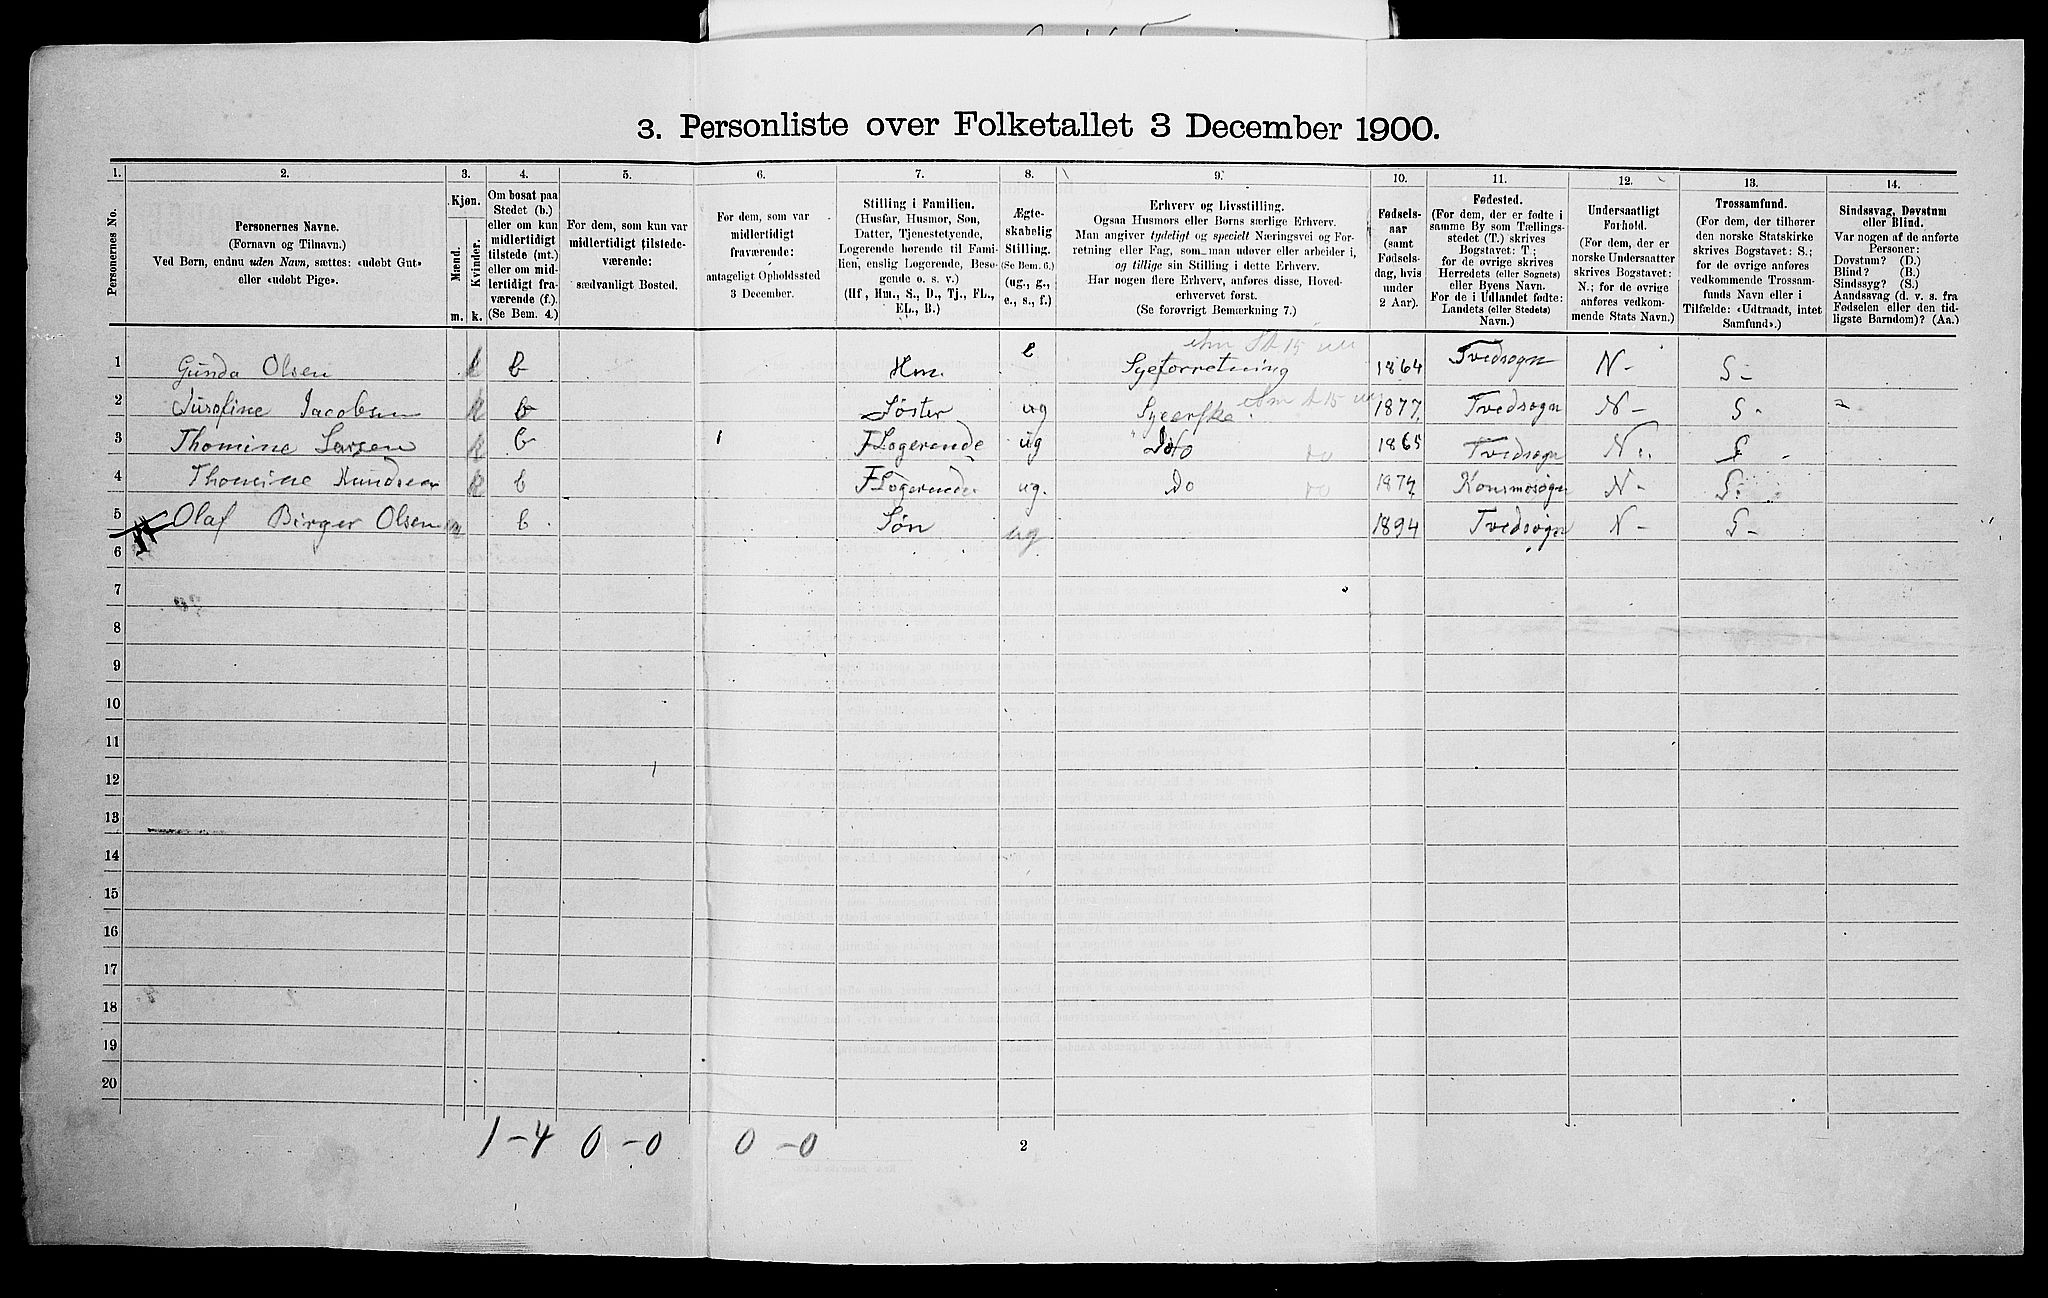 3. Personliste over Folketallet 3 December 1900.
1. 2. 3. 4. 5. 6. 7. 8. 9. 10. 11. 12. 13. 14.
Personernes No.
Personernes Navne.
(Fornavn og Tilnavn.)
Ved Børn, endnu uden Navn, sættes: «udøbt Gut»
eller «udøbt Pige».
Kjøn.
Mænd.
Kvinder.
m. k.
Om bosat paa
Stedet (b.)
eller om kun
midlertidigt
tilstede (mt.)
eller om mid-
lertidigt fra-
værende (f.).
(Se Bem. 4.)
For dem, som kun var
midlertidigt tilstede-
værende:
sædvanligt Bosted.
For dem, som var
midlertidigt
fraværende:
antageligt Opholdssted
3 December.
Stilling i Familien.
(Husfar, Husmor, Søn,
Datter, Tjenestetyende,
Logerende hørende til Fami-
lien, enslig Logerende, Besø-
gende o. s. v.)
(Hf, Hm., S., D., Tj., FL.,
EL., B.)
Ægte-
skabelig
Stilling.
(Se Bem. 6.)
(ug., g.,
e., s., f.)
Erhverv og Livsstilling.
Ogsaa Husmors eller Børns særlige Erhverv.
Man angiver tydeligt og specielt Næringsvei og For-
retning eller Fag, som man udøver eller arbeider i,
og tillige sin Stilling i dette Erhverv.
Har nogen flere Erhverv, anføres disse, Hoved-
erhvervet først.
(Se forøvrigt Bemærkning 7.)
Fødsels-
aar
(samt
Fødsels-
dag, hvis
under
2 Aar).
Fødested.
(For dem, der er fødte i
samme By som Tællings-
stedet (T.) skrives
Bogstavet: T;
for de øvrige skrives
Herredets (eller Sognets)
eller Byens Navn.
For de i Udlandet fødte:
Landets (eller Stedets)
Navn.)
Undersaatligt
Forhold.
(For dem, der er
norske Undersaatter
skrives Bogstavet:
N.; for de øvrige
anføres vedkom-
mende Stats Navn.)
Trossamfund.
(For dem, der tilhører
den norske Statskirke
skrives Bogstavet: S.;
for de øvrige anføres
vedkommende Trossam-
funds Navn eller i
Tilfælde: «Udtraadt, intet
Samfund».)
Sindssvag, Døvstum
eller Blind.
Var nogen af de anførte
Personer:
Døvstum? (D.)
Blind? (B.)
Sindssyg? (S.)
Aandssvag (d. v. s. fra
Fødselen eller den tid-
ligste Barndom)? (Aa.)
1 Gunda Olsen k b Hm. e Syeforretning 1864 Tvedsogn N- S-
2 Jacobsen k b Søster ug 1877 Tvedsogn N- S-
3 Thomine Larsen k b FLogerende ug Do 1865 Tvedsogn N S
4 Thomine Knudsen k b FLogerende ug. Do 1874 Konsmosogn N- S-
5 Olaf Birger Olsen m b Søn ug 1894 Tvedsogn N- S-
6
7
8
9
10
11
12
13
14
15
16
17
18
19
20
1-4 0-0 0-0
2